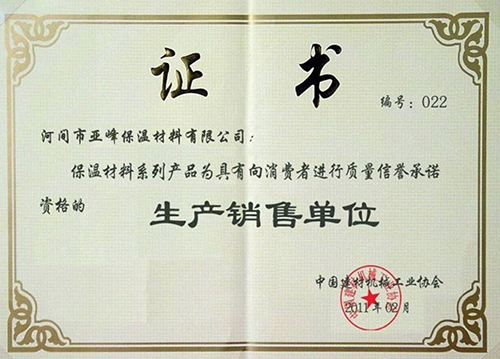 证书
编号：022
河间市亚峰保温材料有限公司：
保温材料系列产品为具有向消费者进行质量信誉承诺
资格的 生产销售单位
中国建材机械工业协会
2011年02月